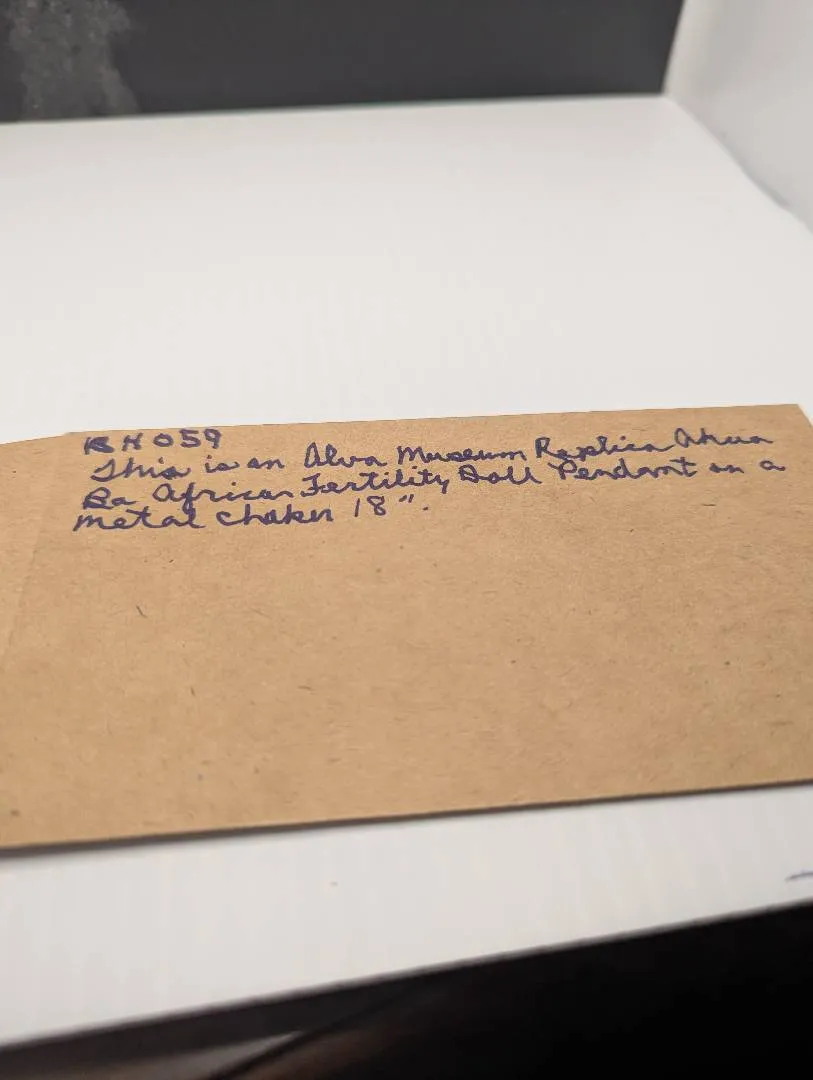 RH059
This is an Alva Museum Replica Akua
Ba African Fertility Doll Pendant on a
metal choker 18".